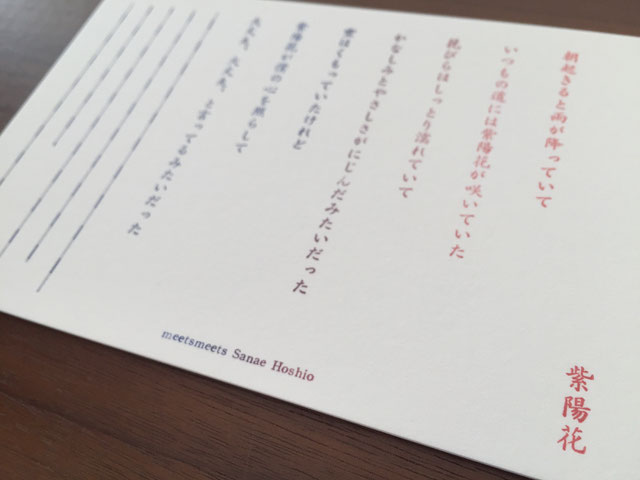 紫陽花
朝起きると雨が降っていて
いつもの道には紫陽花が咲いていた
花びらはしっとり濡れていて
かなしみとやさしさがにじんだみたいだった
空はくもっていたけれど
紫陽花が僕の心を照らして
大丈夫、大丈夫、と言ってるみたいだった
meetsmeets Sanae Hoshio